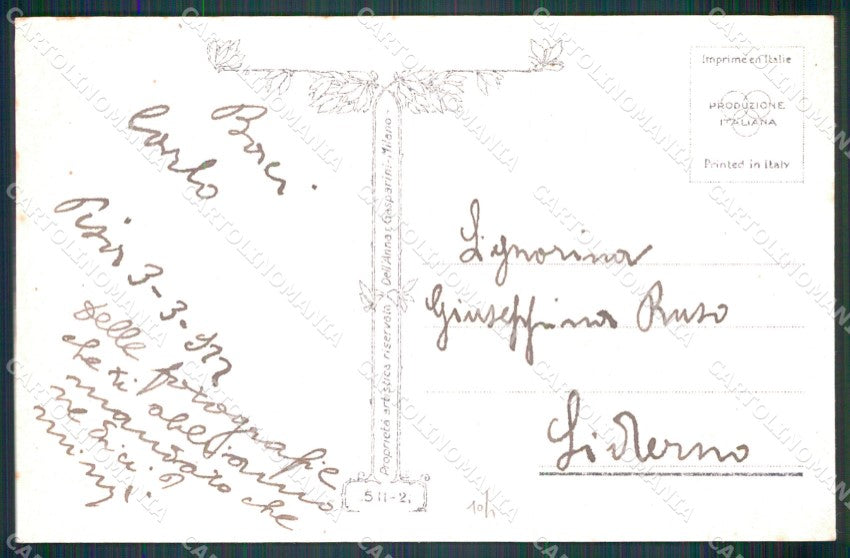 Baci
Carlo
Pisa 3-3-922
Delle fotografie
che ti abbiamo
mandato che
ne dici?
Proprietà artistica riservata Dell'Anna & Gasparini - Milano
511-2.
Imprimé en Italie
PRODUZIONE
ITALIANA
Printed in Italy
Signorina
Giuseppina Ruso
Siderno
10/1
CARTOLINOMANIA